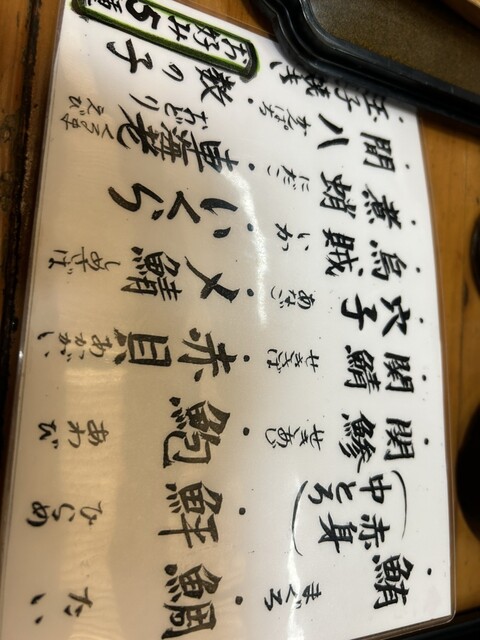 鮪
(赤身
中とろ)
まぐろ
関鯵
せきあじ
関鯖
せきさば
穴子
あなご
烏賊
いか
煮蛸
にだこ
間八
かんぱち
玉子焼き
鯛
たい
鮃
ひらめ
鮑
あわび
赤貝
あかがい
〆鯖
しめさば
いくら
車海老
おどり
くるまえび
数の子
お好み5種